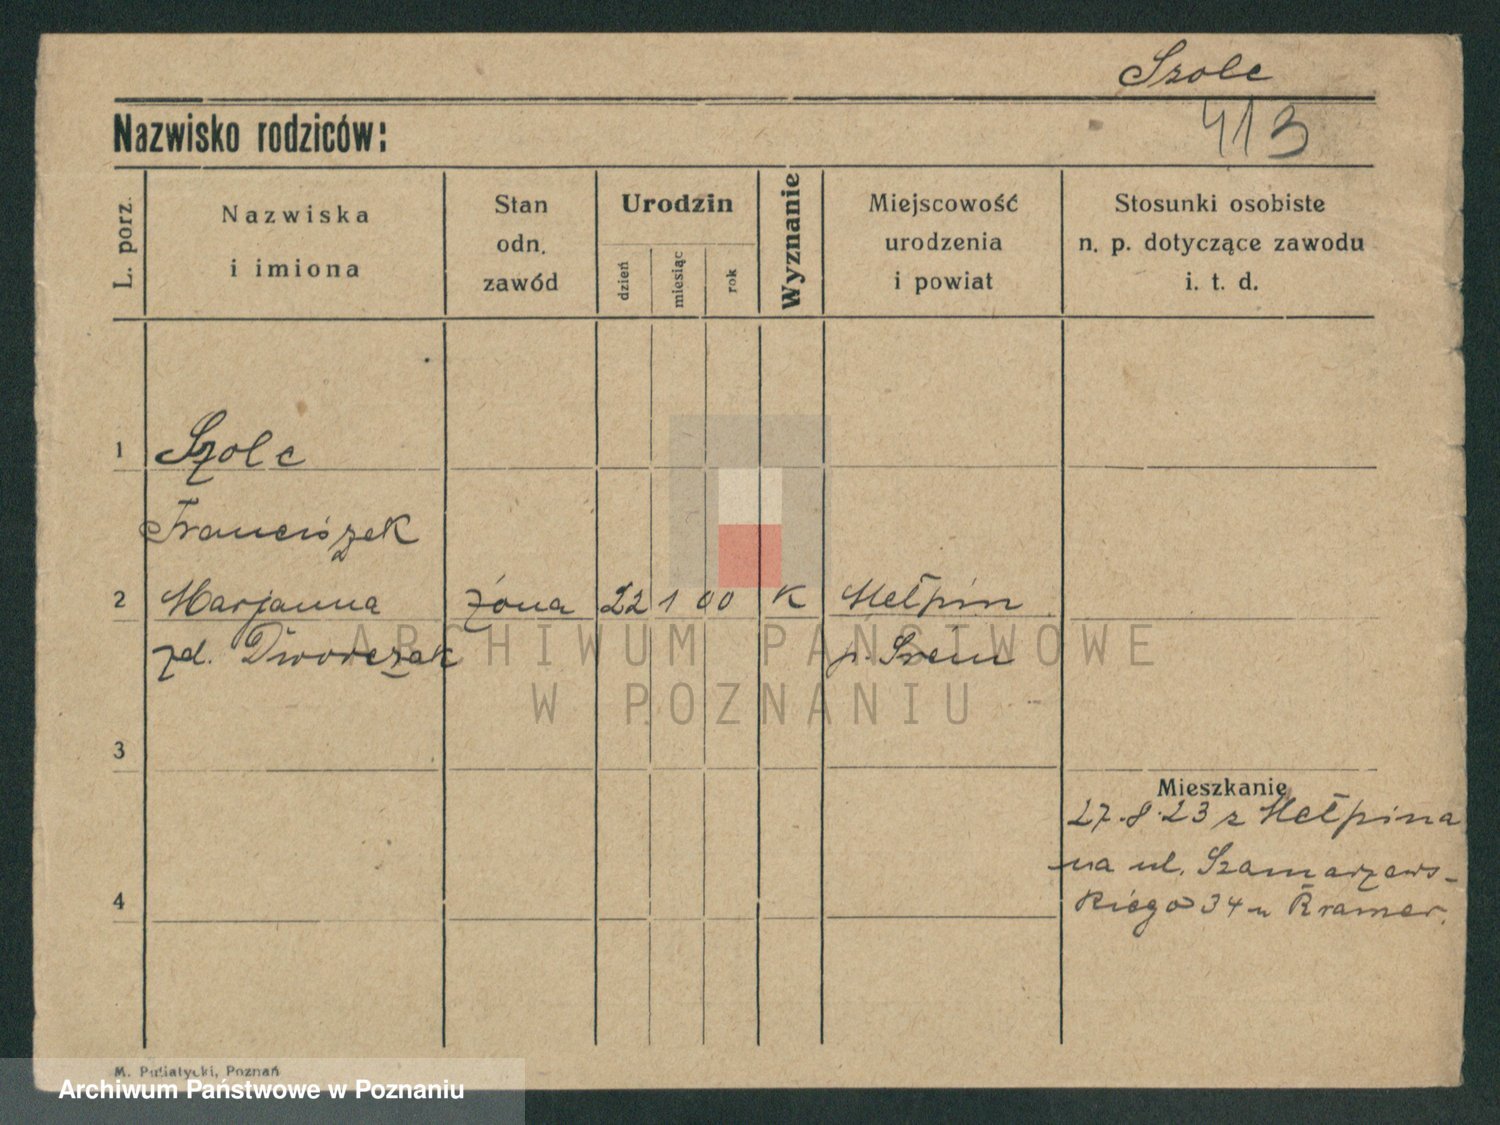 Szolc
413
Nazwisko rodziców:
L. porz.
Nazwiska
i imiona
Stan
odn.
zawód
Urodzin
dzień
miesiąc
rok
Wyznanie
Miejscowość
urodzenia
i powiat
Stosunki osobiste
n. p. dotyczące zawodu
i. t. d.
1 Szolc
Franciszek
2 Marjanna żona 22 1 00 K Mełpin
zd. Dworczak p. Śrem
ARCHIWUM PAŃSTWOWE
W POZNANIU
3
Mieszkanie
27.8.23 z Mełpina
na ul. Szamarzews-
kiego 34 u Kramer.
4
M. Putiatycki, Poznań
Archiwum Państwowe w Poznaniu